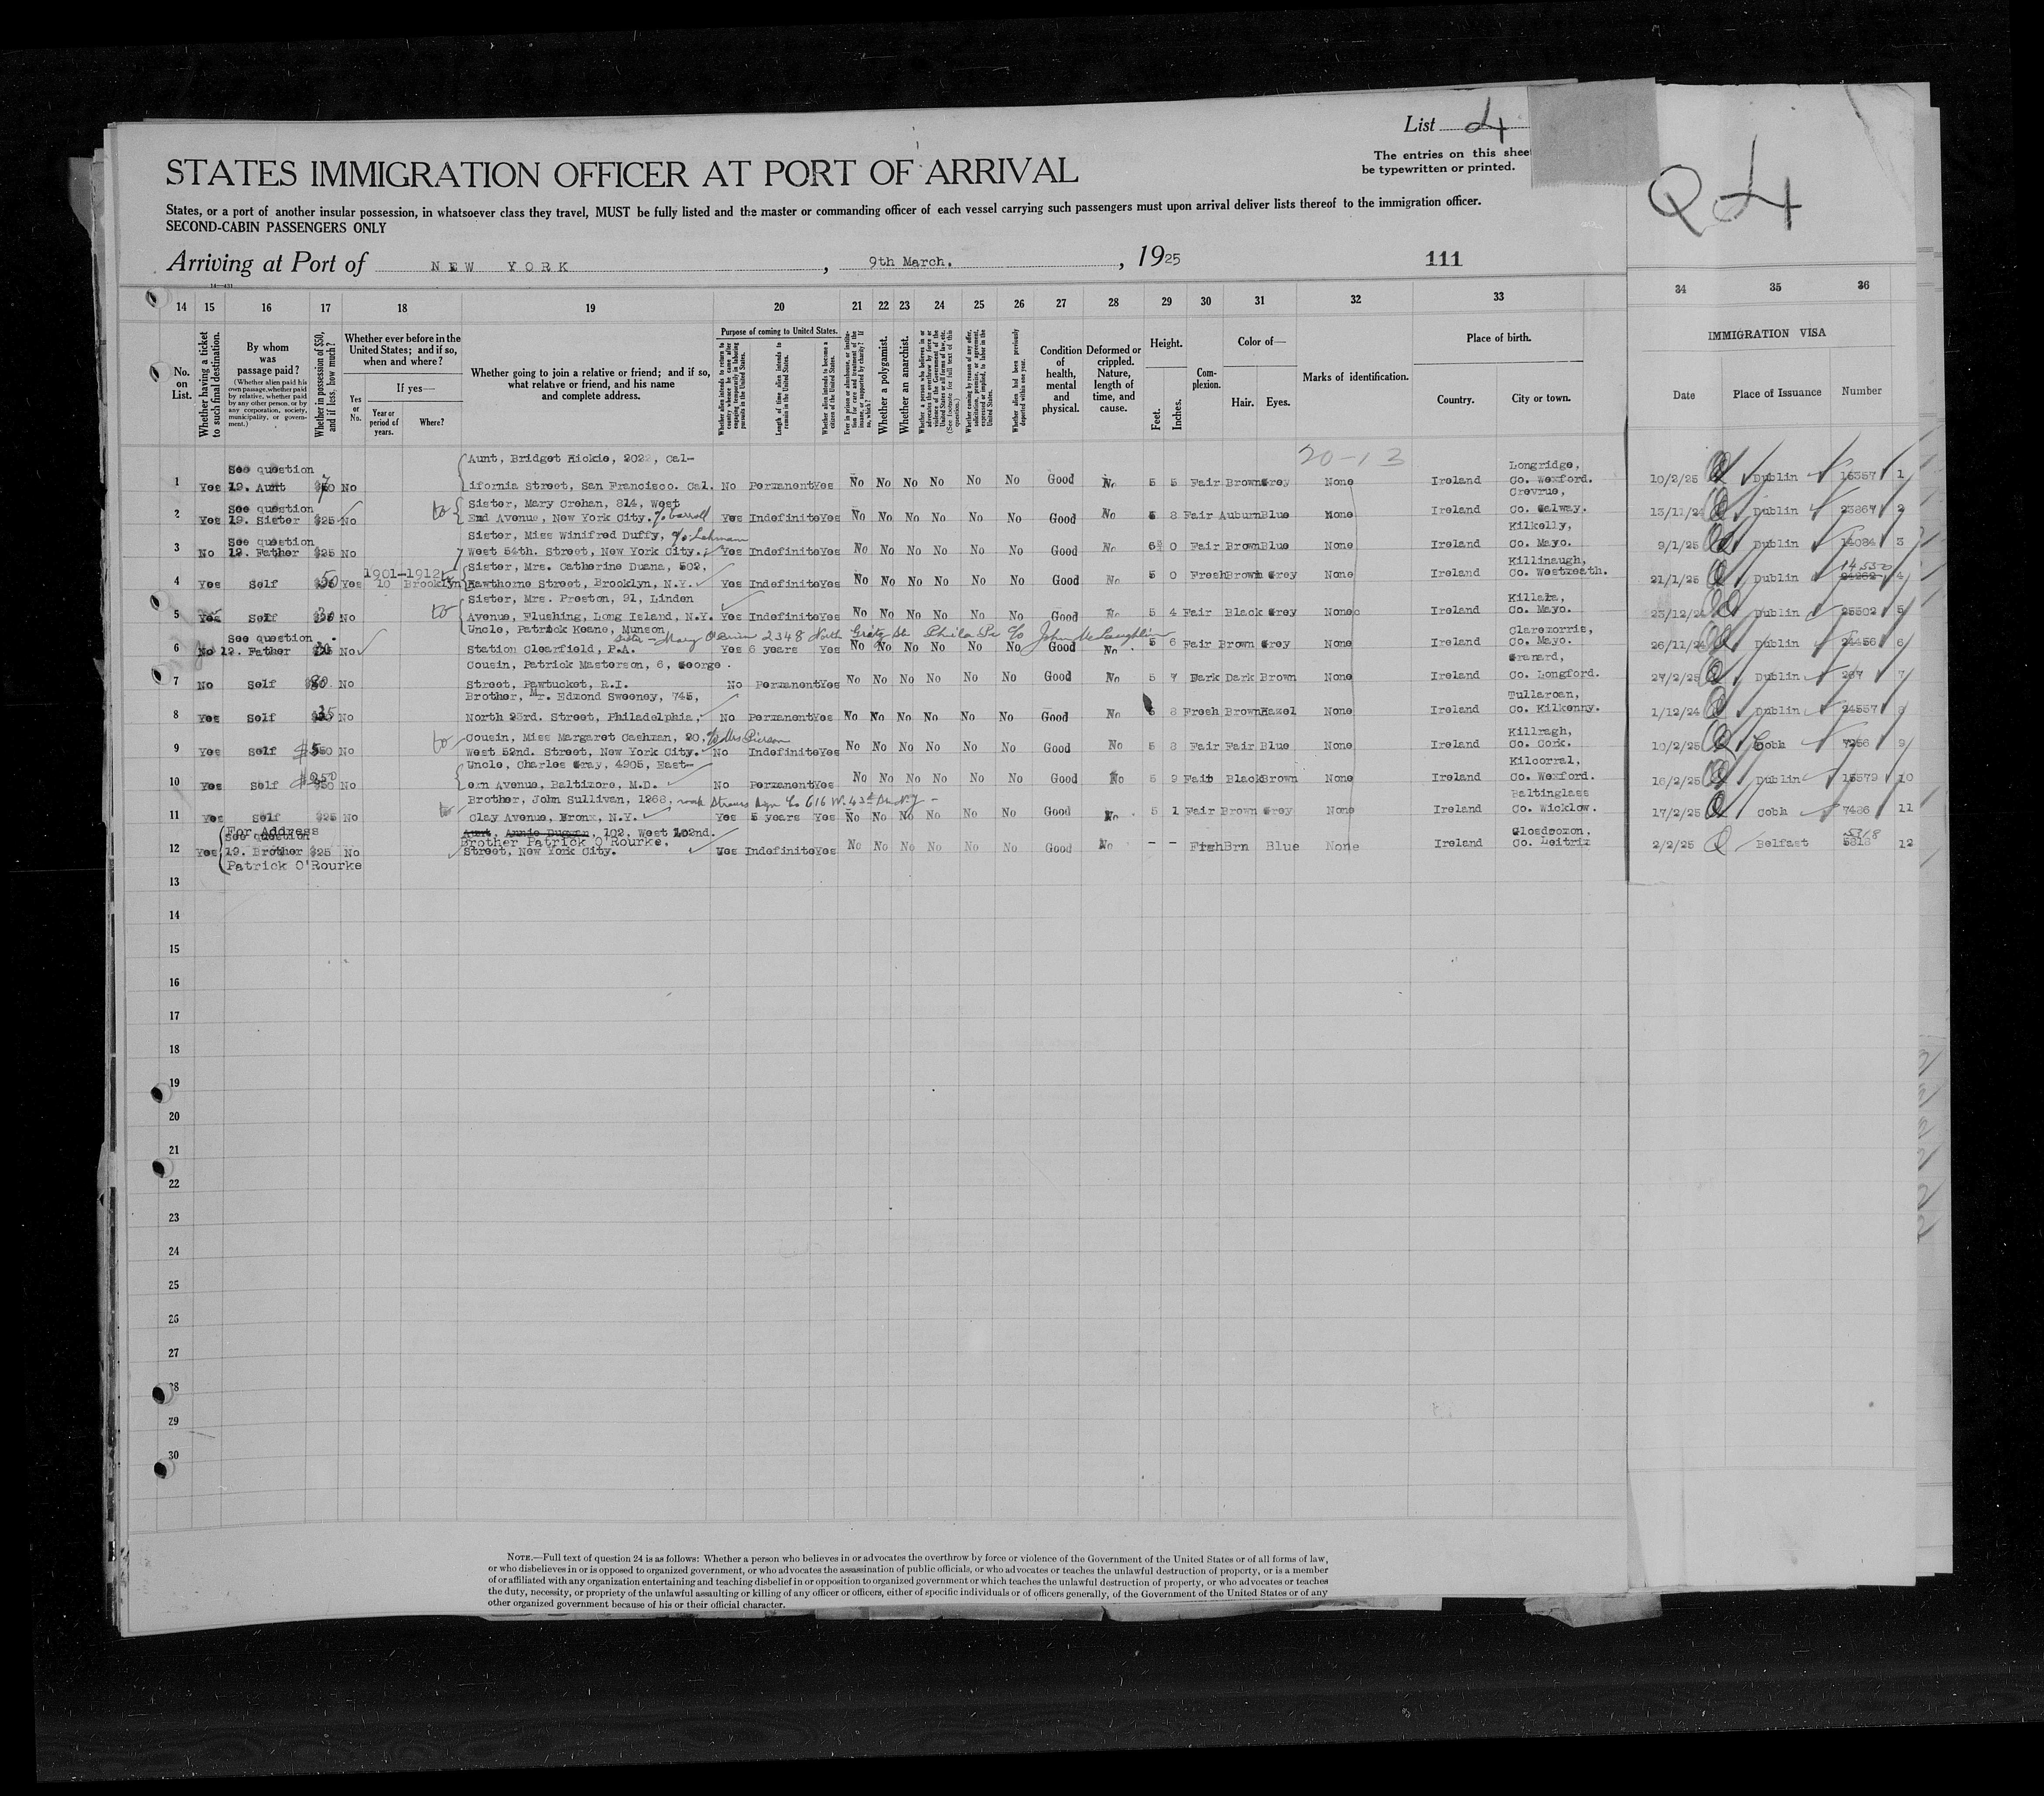 List 4
The entries on this sheet
be typewritten or printed.
Q 4
STATES IMMIGRATION OFFICER AT PORT OF ARRIVAL
States, or a port of another insular possession, in whatsoever class they travel, MUST be fully listed and the master or commanding officer of each vessel carrying such passengers must upon arrival deliver lists thereof to the immigration officer.
SECOND-CABIN PASSENGERS ONLY
Arriving at Port of NEW YORK, 9th March., 1925
111
14 15 16 17 18 19 20 21 22 23 24 25 26 27 28 29 30 31 32 33 34 35 36
No. on List.
Whether having a ticket to such final destination.
By whom was passage paid?
(Whether alien paid his own passage, whether paid by relative, whether paid by any other person, or by any corporation, society, municipality, or government.)
Whether in possession of $50, and if less, how much?
Whether ever before in the United States; and if so, when and where?
Yes or No.
If yes—
Year or period of years.
Where?
Whether going to join a relative or friend; and if so, what relative or friend, and his name and complete address.
Purpose of coming to United States.
Length of time alien intends to remain in the United States.
Whether alien intends to become a citizen of the United States.
Whether a polygamist.
Whether an anarchist.
Condition of health, mental and physical.
Deformed or crippled. Nature, length of time, and cause.
Height.
Feet.
Inches.
Complexion.
Color of—
Hair.
Eyes.
Marks of identification.
Place of birth.
Country.
City or town.
IMMIGRATION VISA
Date
Place of Issuance
Number
20-13
Aunt, Bridget Hickie, 2022, Cal-
See question Longridge,
1 Yes 19. Aunt No ifornia Street, San Francisco. Cal. No Permanent Yes No No No No No No Good No 5 5 Fair Brown Grey None Ireland Co. Wexford. 10/2/25 Dublin 15357 1
See question Sister, Mary Crehan, 814, West Crevrue,
2 Yes 19. Sister $25 No to End Avenue, New York City. c/o Carroll Yes Indefinite Yes No No No No No No Good No 5 8 Fair Auburn Blue None Ireland Co. Galway. 13/11/24 Dublin 23867 2
See question Sister, Miss Winifred Duffy, c/o Lehmann Kilkelly,
3 No 19. Father $25 No West 54th. Street, New York City. Yes Indefinite Yes No No No No No No Good No 0 Fair Brown Blue None Ireland Co. Mayo. 9/1/25 Dublin 14084 3
1901-1912 Sister, Mrs. Catherine Duana, 502, Killinaugh, 14550
4 Yes Self 50 Yes 10 Brooklyn Hawthorne Street, Brooklyn, N.Y. Yes Indefinite Yes No No No No No No Good No 5 0 Fresh Brown Grey None Ireland Co. Westmeath. 21/1/25 Dublin 24262 4
Sister, Mrs. Preston, 91, Linden Killala,
5 Yes Self No to Avenue, Flushing, Long Island, N.Y. Yes Indefinite Yes No No No No No No Good No 5 4 Fair Black Grey None Ireland Co. Mayo. 23/12/24 Dublin 25302 5
Uncle, Patrick Keane, Munson
See question Sister - Mary O'Brien 2348 North Gratz St. Phila Pa c/o John McLaughlin Claremorris,
6 No 19. Father No Station Clearfield, P.A. Yes 6 years Yes No No No No No No Good No 5 6 Fair Brown Grey None Ireland Co. Mayo. 26/11/24 Dublin 24456 6
Cousin, Patrick Masterson, 6, George Granard,
7 No Self 80 No Street, Pawtucket, R.I. No Permanent Yes No No No No No No Good No 5 7 Dark Dark Brown None Ireland Co. Longford. 27/2/25 Dublin 267 7
Brother, Mr. Edmond Sweeney, 745, Tullaroan,
8 Yes Self 35 No North 23rd. Street, Philadelphia, No Permanent Yes No No No No No No Good No 5 8 Fresh Brown Hazel None Ireland Co. Kilkenny. 1/12/24 Dublin 24557 8
Cousin, Miss Margaret Cashman, 20, Killragh,
9 Yes Self No to West 52nd. Street, New York City. No Indefinite Yes No No No No No No Good No 5 8 Fair Fair Blue None Ireland Co. Cork. 10/2/25 Cobh 7256 9
Uncle, Charles Gray, 4905, East- Kilcorral,
10 Yes Self No ern Avenue, Baltimore, M.D. No Permanent Yes No No No No No No Good No 5 9 Fair Black Brown None Ireland Co. Wexford. 16/2/25 Dublin 15579 10
Brother, John Sullivan, 1268, 616 W. 43rd St. N.Y. Baltinglass
11 Yes Self $25 No Clay Avenue, Bronx, N.Y. Yes 5 years Yes No No No No No No Good No 5 1 Fair Brown Grey None Ireland Co. Wicklow. 17/2/25 Cobh 7486 11
For Address
see question Aunt, Annie Duggan, 102, West 102nd. Glosdroman, 5318
Brother Patrick O'Rourke.
12 Yes 19. Brother $25 No Street, New York City. Yes Indefinite Yes No No No No No No Good No - - Brn Blue None Ireland Co. Leitrim 2/2/25 Belfast 12
Patrick O'Rourke
13
14
15
16
17
18
19
20
21
22
23
24
25
26
27
28
29
30
NOTE.—Full text of question 24 is as follows: Whether a person who believes in or advocates the overthrow by force or violence of the Government of the United States or of all forms of law,
or who disbelieves in or is opposed to organized government, or who advocates the assassination of public officials, or who advocates or teaches the unlawful destruction of property, or is a member
of or affiliated with any organization entertaining and teaching disbelief in or opposition to organized government or which teaches the unlawful destruction of property, or who advocates or teaches
the duty, necessity, or propriety of the unlawful assaulting or killing of any officer or officers, either of specific individuals or of officers generally, of the Government of the United States or of any
other organized government because of his or their official character.